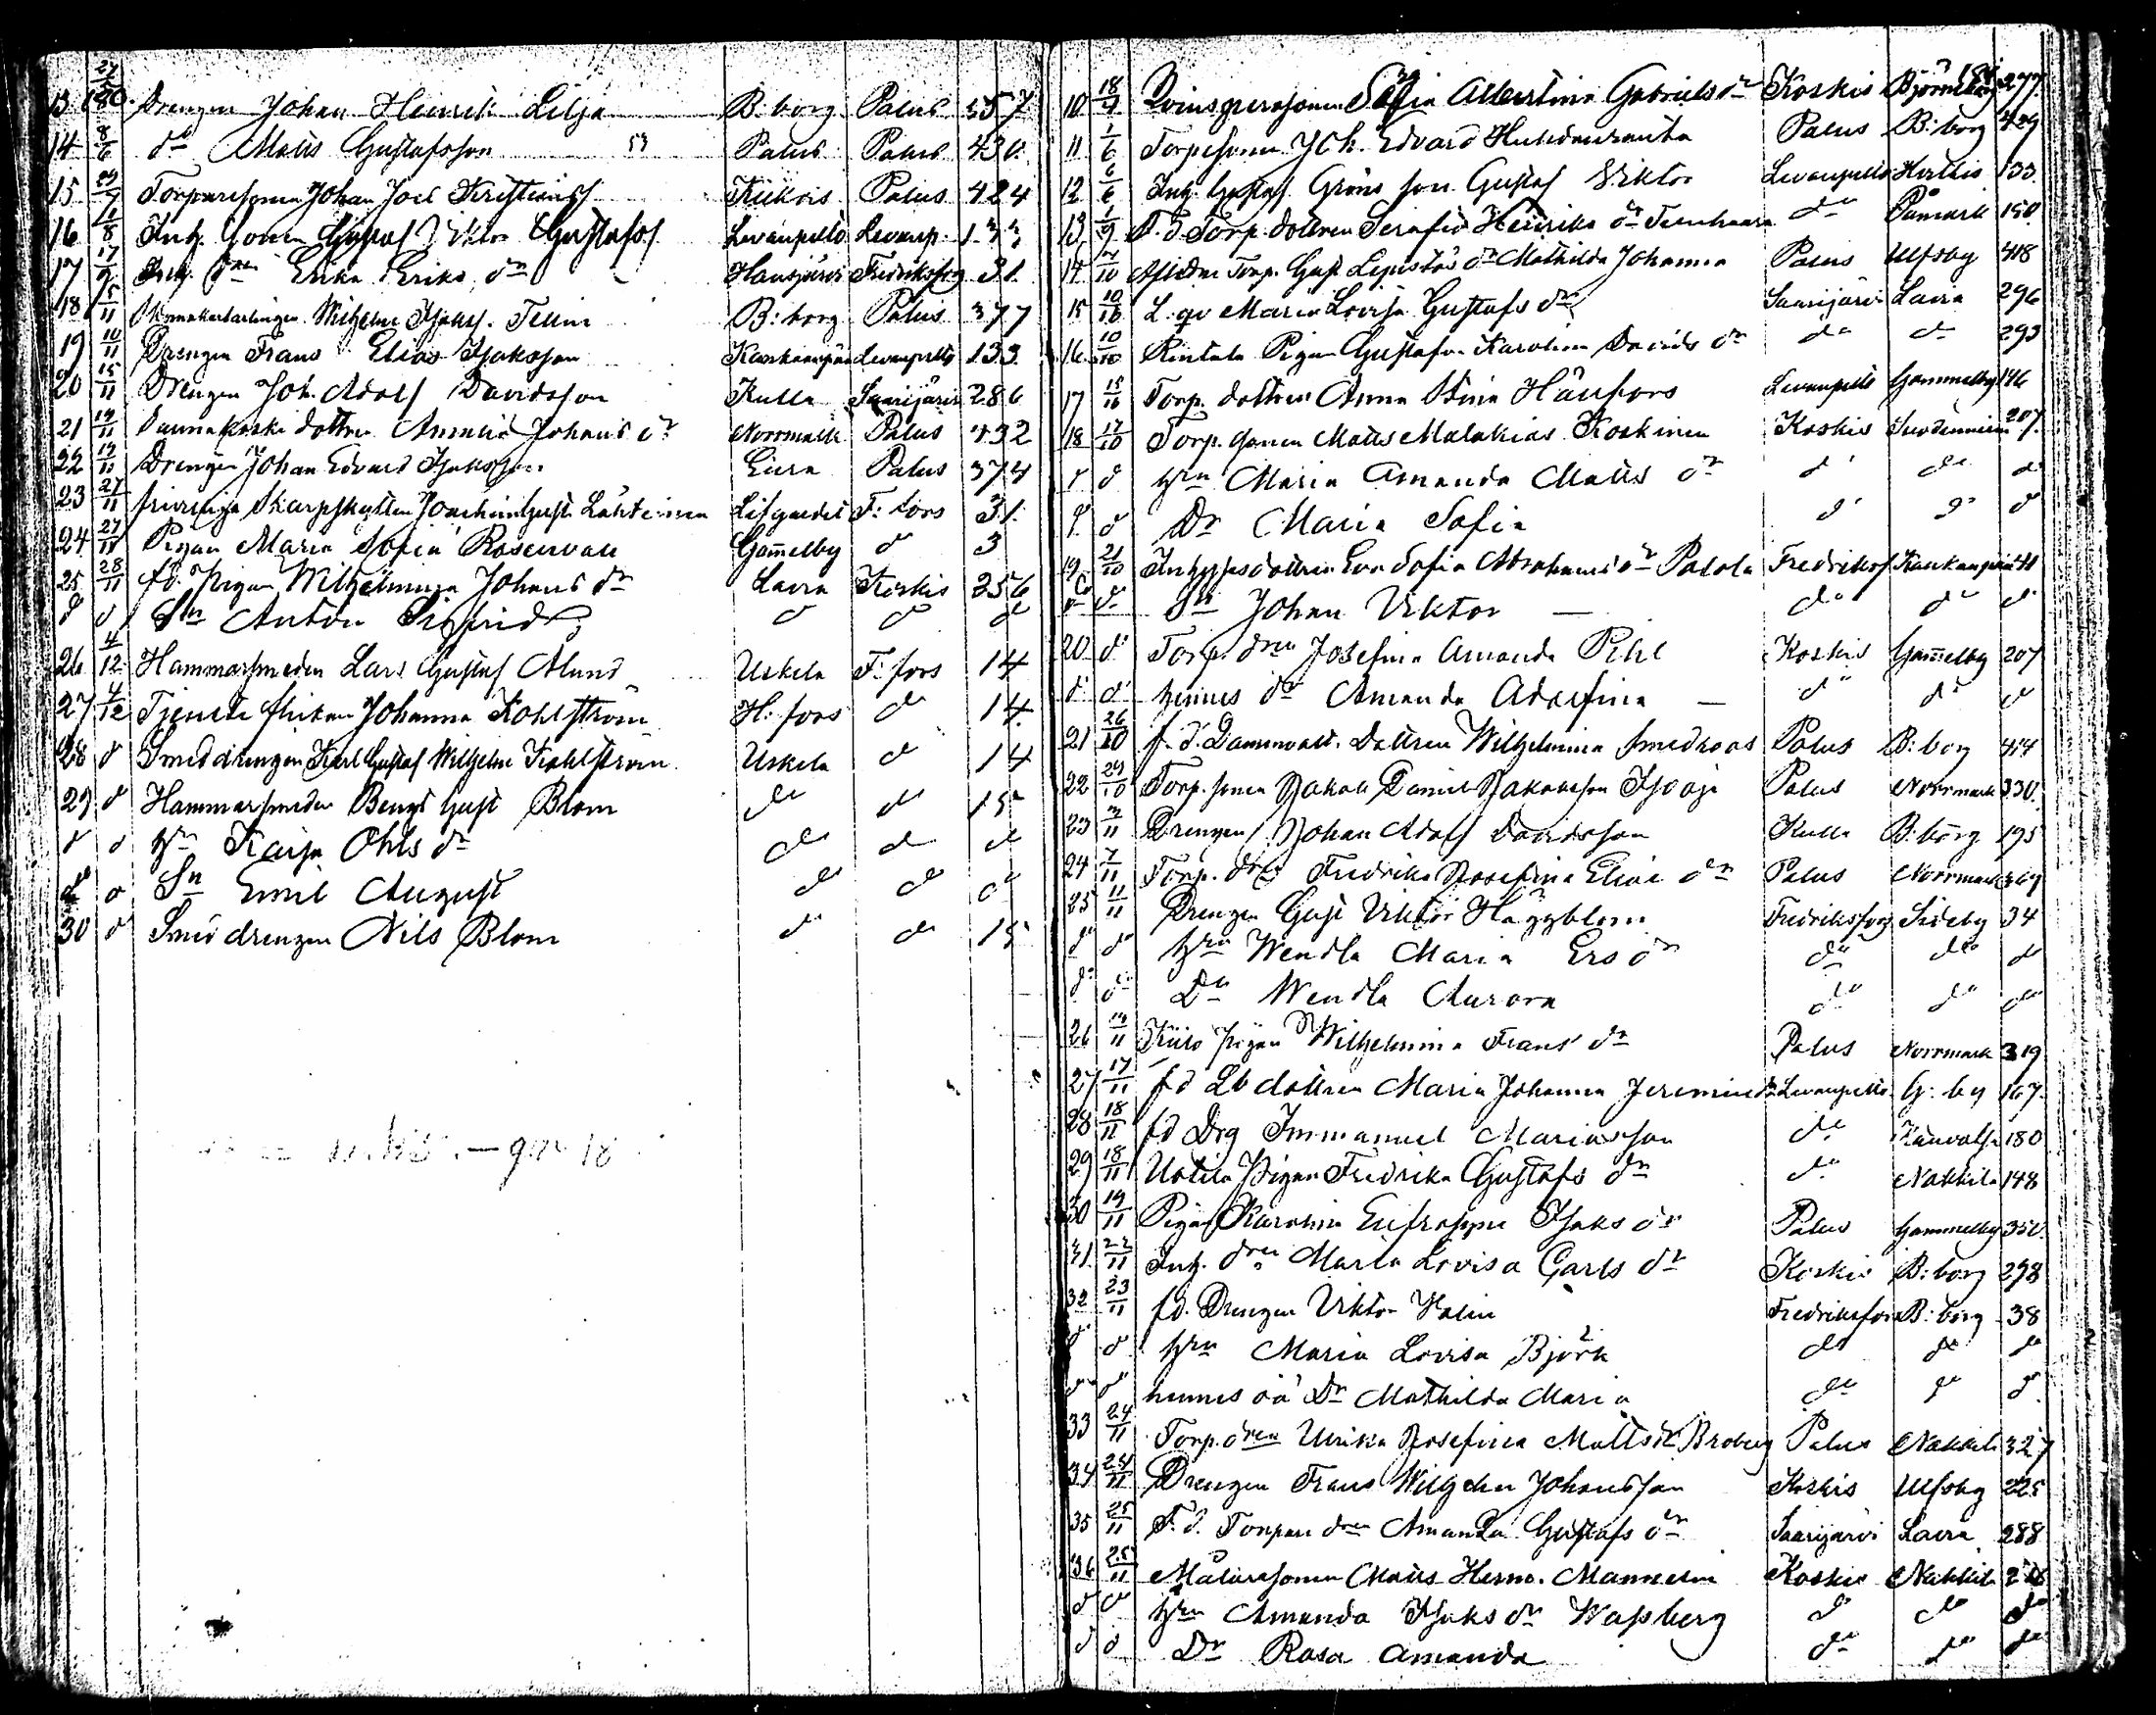 13 27/5 80. Drengen Johan Henrik Lilja B:borg Palus 357
14 8/6 do Matts Gustafsson Palus Palus 430
15 29/7 Torparesonen Johan Joel Kristianss Kiikois Palus 424
16 1/8 Inh. Sonen Gustaf Viktor Gustafss Levanpelto Levanp. 133
17 17/9 Inh. dren Erika Eriks dr Hansjärvi Fredriksforg 31
18 5/11 Wilhelm Isakss. Tellin B:borg Palus 377
19 10/11 Drengen Frans Elias Isaksson Kankaanpää Levanpelto 133
20 15/11 Drengen Joh. Adolf Davidsson Kulla Saarijärvi 286
21 19/11 dottren Amalia Johans dr Norrmark Palus 432
22 19/11 Drengen Johan Edvard Isaksson Eura Palus 374
23 27/11 Skarpskytten Joachim Gust. Lähteinen F:fors 31
24 27/11 Pigan Maria Sofia Rosenvall Gammelby do 3
25 28/11 fd. Pigan Wilhelmina Johans dr Lavia Koskis 256
do do Sn Anton Sigfrid do do do
26 4/12 Hammarsmeden Lars Gustaf Ahlund Uskela F:fors 14
27 4/12 Tjenste flickan Johanna Kohlström H:fors do 14
28 do Smeddrengen Karl Gustaf Wilhelm Kohlström Uskela do 14
29 do Hammarsmeden Bengt Gust Blom do do 15
do do Hru Kaisa Ohls dr do do do
do do Sn Emil August do do do
30 do Smeddrengen Nils Blom do do 15
184
10 18/4 Qvinspersonen Sofia Albertina Gabriels dr Koskis Björneborg 277
11 1/6 Torpesonen Joh. Edvard Huhdanranta Palus B:borg 429
12 6/6 Inh. Gustaf Gröns son Gustaf Viktor Levanpelto 133
13 1/9 f.d Torp. dottren Serafia Henriks dr do Påmark 150
14 7/10 Torp. Gust Lepistös dr Mathilda Johanna Palus Ulfsby 418
15 10/10 L. qv Maria Lovisa Gustafs dr Saarijärvi Lavia 296
16 10/10 Rintala Pigan Gustafva Karolina Davids dr do do 293
17 15/10 Torp. dottren Anna Stina Hänfors Levanpelto Gammelby 146
18 17/10 Torp. sonen Matts Malakias Koskinen Koskis Suodenniemi 207
do do Hru Maria Amanda Matts dr do do do
do do Dr Maria Sofia do do do
19 21/10 Inhysesdottren Eva Sofia Abrahams dr Palola Fredriksf Kankaanpää 41
do do Sn Johan Viktor — do do do
20 do Torp. dren Josefina Amanda Pihl Koskis Gammelby 207
do do hennes dr Amanda Adolfina — do do do
21 26/10 f.d. Dottren Wilhelmina Smedroos Palus B:borg 414
22 29/10 Torp. sonen Jakob Daniel Jakobsson Isooja Palus Norrmark 330
23 3/11 Drengen Johan Adolf Davidsson Kulla B:borg 195
24 7/11 Torp. dr Fredrika Josefina Elias dr Palus Norrmark 369
25 11/11 Drengen Gust Viktor Häggblom Fredriksforg Sideby 34
do do Hru Wendla Maria Ers dr do do do
do do Dr Wendla Aurora do do do
26 14/11 Kiiro pigan Wilhelmina Frans dr Palus Norrmark 319
27 17/11 fd Lb dottren Maria Johanna Jeremias dr Levanpelto G:by 167
28 18/11 fd Drg Immanuel Mariasson do 180
29 18/11 Uotila Pigan Fredrika Gustafs dr do Nakkila 148
30 19/11 Pigan Karolina Eufrosyne Isaks dr Palus Gammelby 350
31 22/11 Inh. dren Maria Lovisa Carls dr Koskis B:borg 298
32 23/11 fd. Drengen Viktor Halin Fredriksfors B:borg 38
do do Hru Maria Lovisa Björk do do do
do do hennes oä Dr Mathilda Maria do do do
33 24/11 Torp. dren Ulrika Josefina Matts dr Broberg Palus Nakkila 327
34 24/11 Drengen Frans Wilhelm Johansson Koskis Ulfsby 225
35 25/11 F.d. Torpare dren Amanda Gustafs dr Saarijärvi Lavia 288
36 25/11 Målaresonen Matts Herm. Mannelin Koskis Nakkila
do do Hru Amanda Isaks dr Wassberg do do do
do do Dr Rosa Amanda do do do